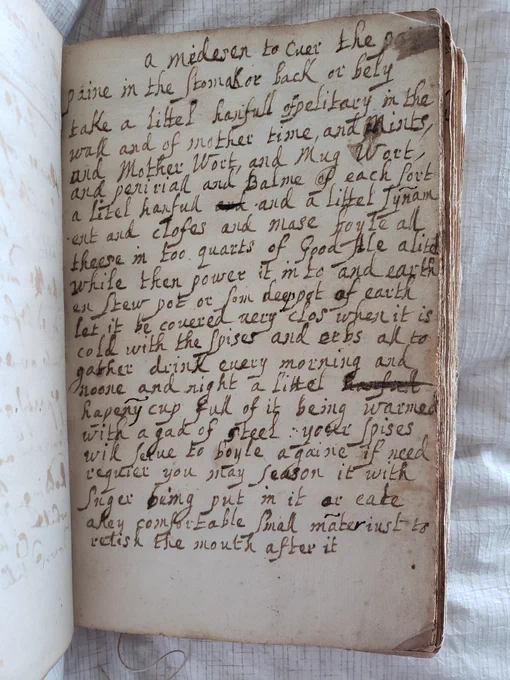 a medesen to cuer the
paine in the stomak or back or bely
take a littel hanfull of pelitary in the
wall and of mother time, and Mints,
and Mother Wort, and Mug Wort,
and peniriall and Balme of each sort
a litel hanfull and a littel Synam
ent and clofes and mase boyle all
theese in too quarts of Good Ale a litel
while then power it in to and earth
en stew pot or som deep pot of earth
let it be covered very clos when it is
cold with the spises and erbs all to
gather drink every morning and
noone and night a littel hanfull
hapeny cup full of it being warmed
with a gad of steel : your spises
will serve to boyle againe if need
requier you may season it with
suger being put in it or eate
comfortable small just to
relish the mouth after it